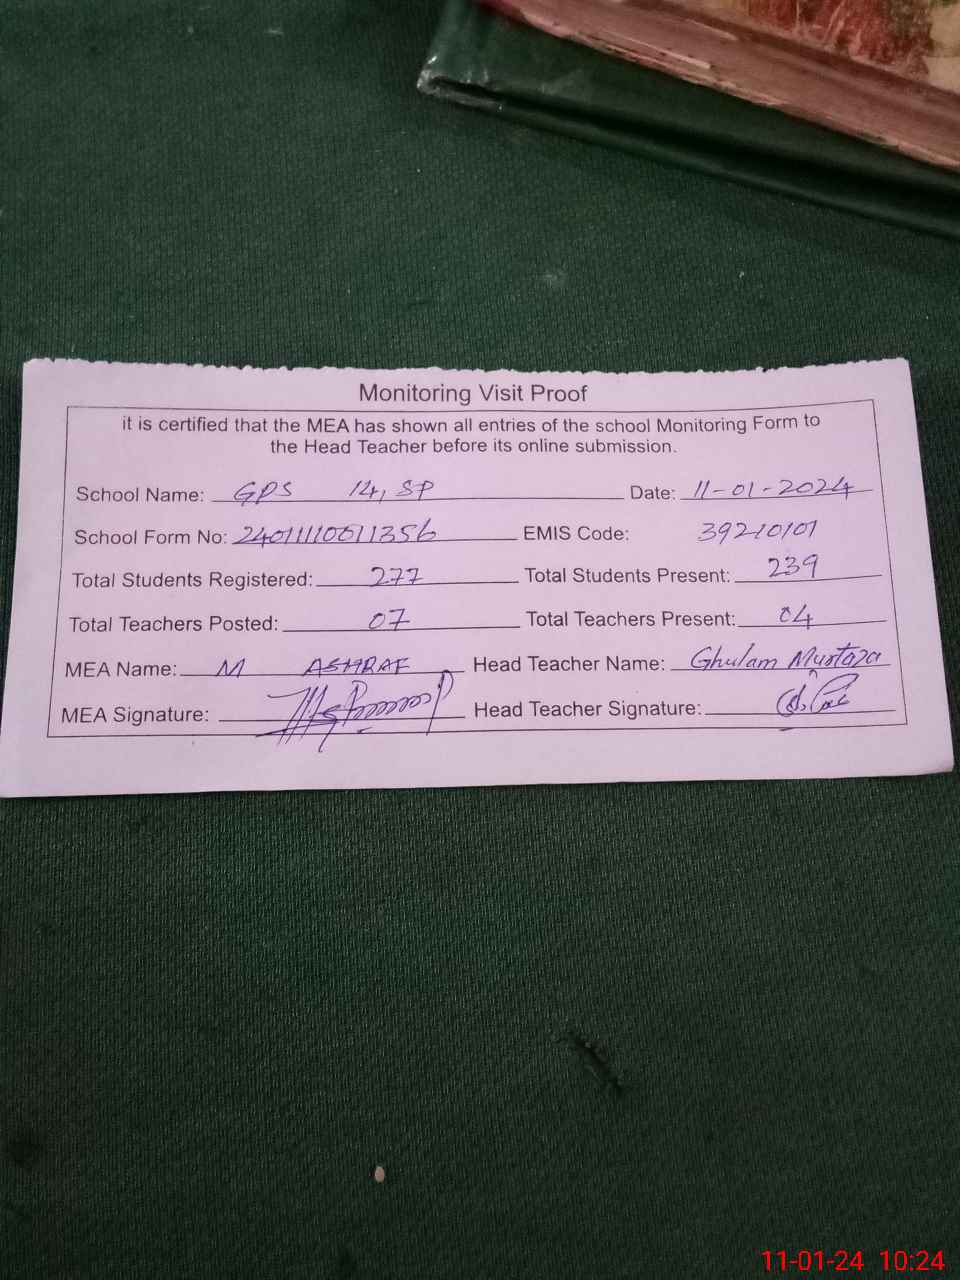 Monitoring Visit Proof
it is certified that the MEA has shown all entries of the school Monitoring Form to
the Head Teacher before its online submission.
School Name: GPS 14, SP Date: 11-01-2024
School Form No: 24011110011356 EMIS Code: 39210101
Total Students Registered: 277 Total Students Present: 239
Total Teachers Posted: 07 Total Teachers Present: 04
MEA Name: M ASHRAF Head Teacher Name: Ghulam Murtaza
MEA Signature: Head Teacher Signature:
11-01-24 10:24